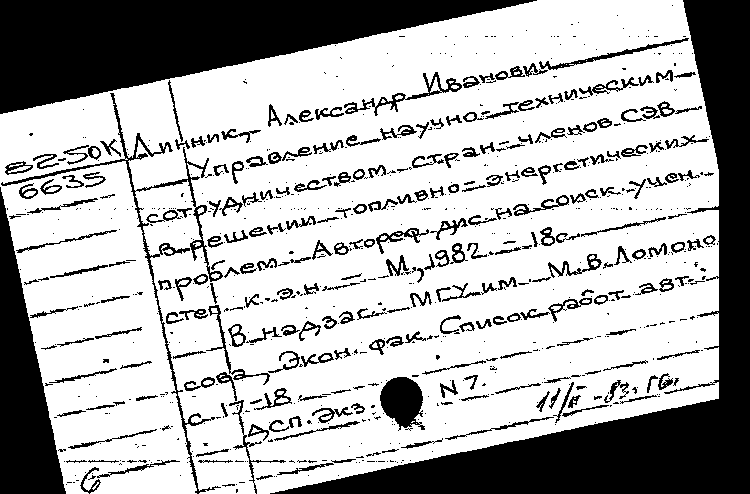 82-50К
6635
Линник, Александр Иванович
Управление научно-техническим
сотрудничеством стран-членов СЭВ
в решении топливно-энергетических
проблем: Автореф. дис. на соиск. учен.
степ. к.э.н. - М., 1982 - 18с.
В надзаг.: МГУ им. М.В.Ломоно
сова, Экон. фак. Список работ авт.:
с 17-18.
ДСП. Экз. N 7.
11/II -83г.
6